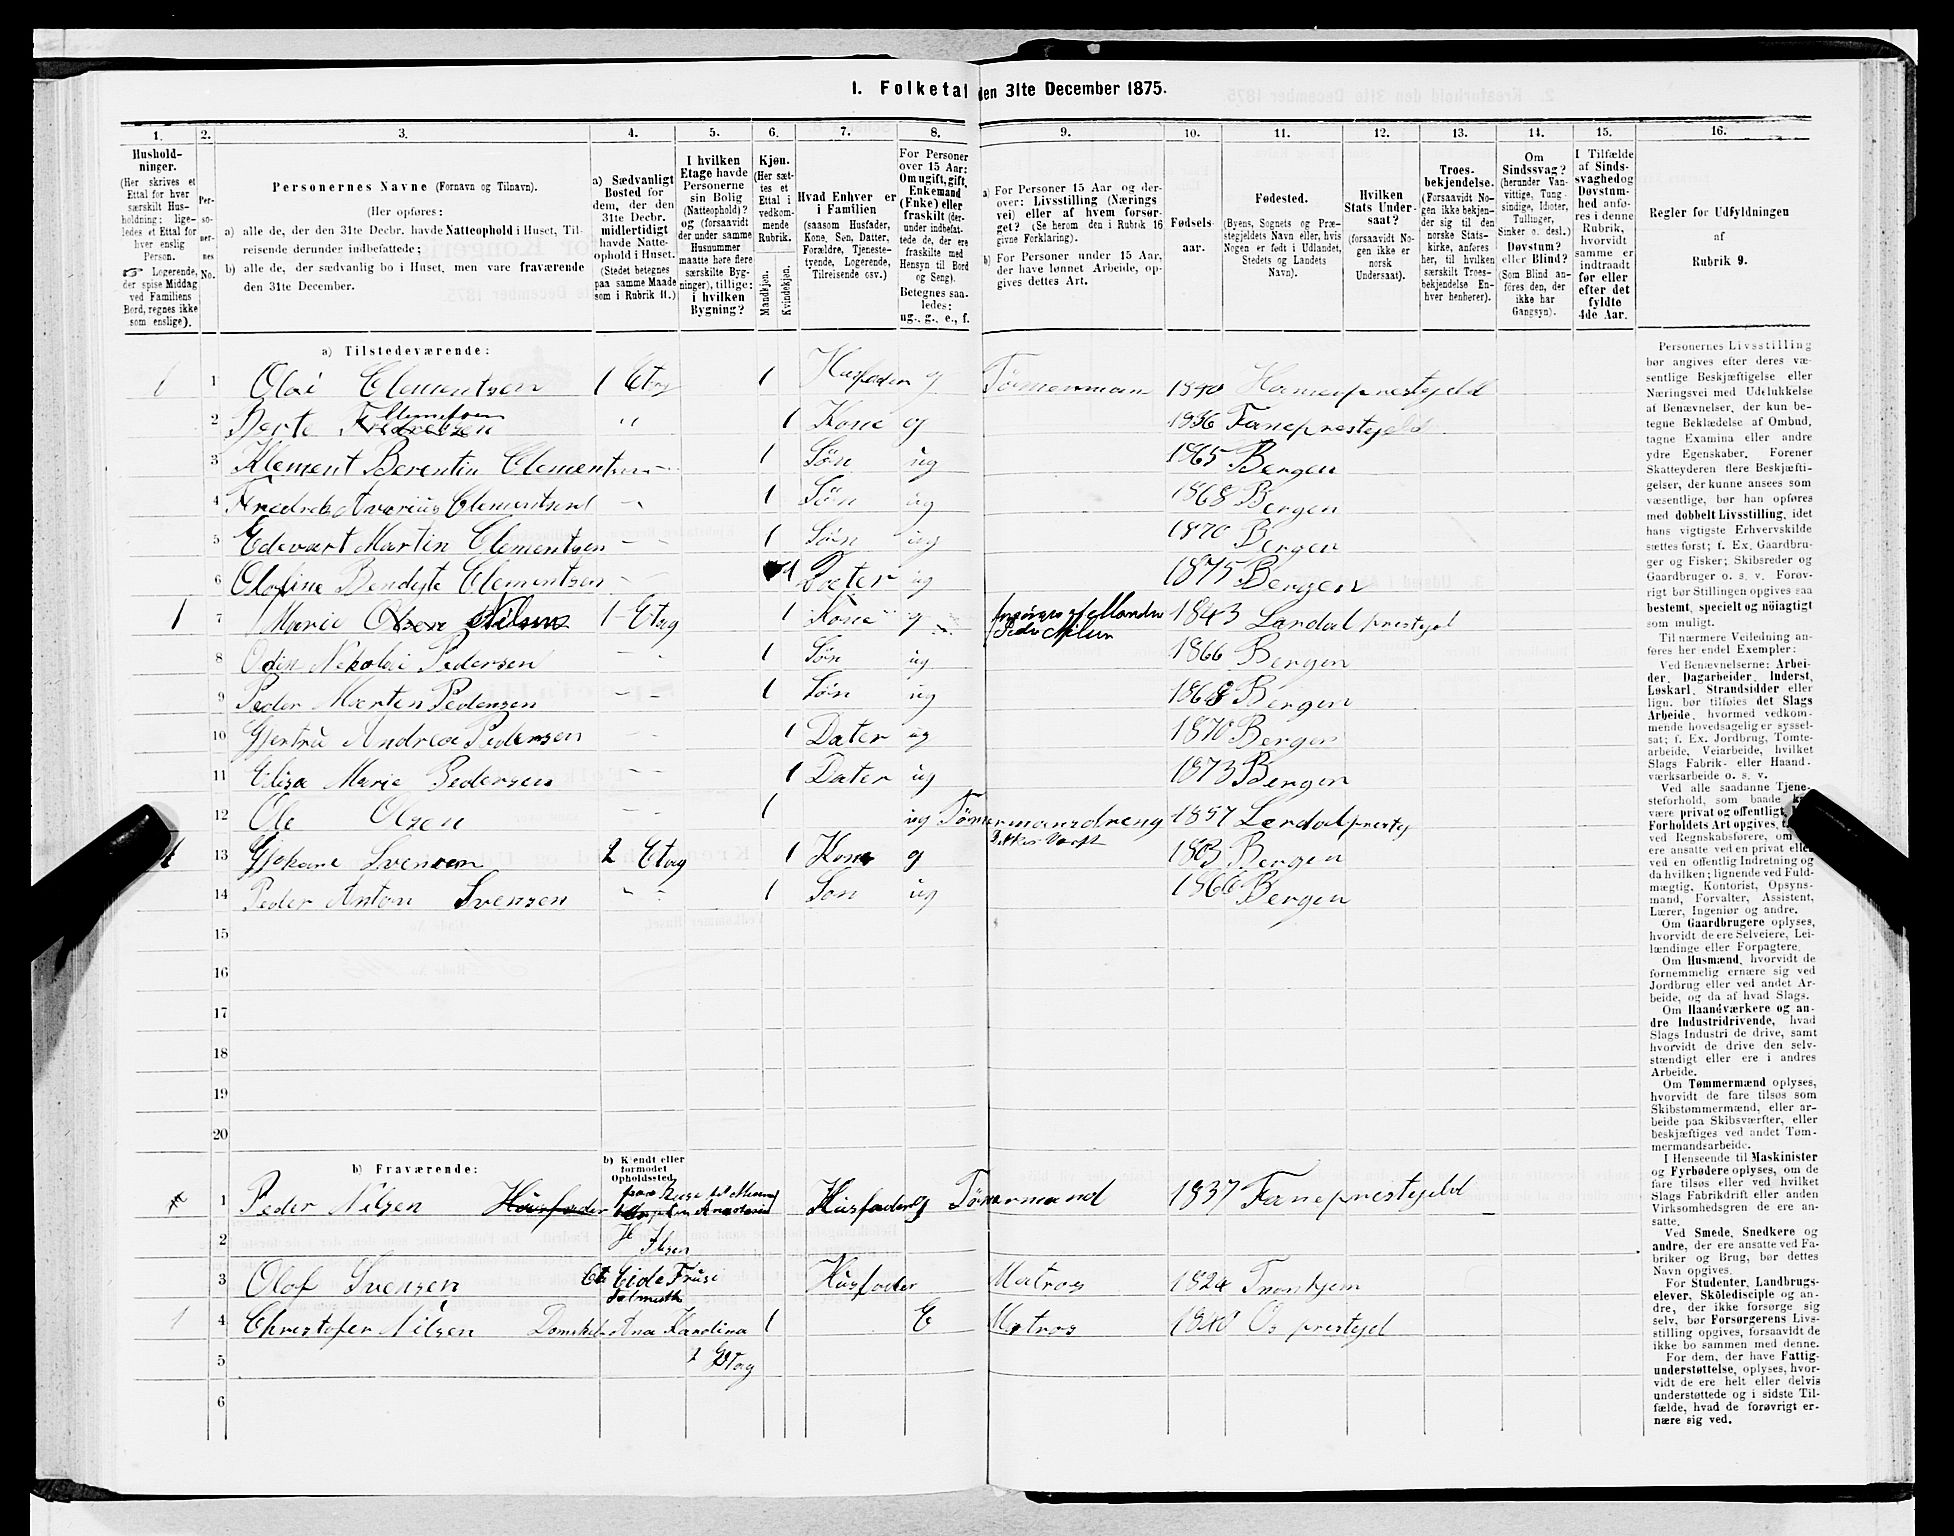 1. Folketal den 31te December 1875.
1. 2. 3. 4. 5. 6. 7. 8. 9. 10. 11. 12. 13. 14. 15. 16.
Hushold-
ninger.
(Her skrives et
Ettal for hver
særskilt Hus-
holdning; lige-
ledes et Ettal for
hver enslig
Person.
☞ Logerende,
der spise Middag
ved Familiens
Bord, regnes ikke
som enslige).
Per-
so-
ner-
nes
No.
Personernes Navne (Fornavn og Tilnavn).
(Her opføres:
a) alle de, der den 31te Decbr. havde Natteophold i Huset, Til-
reisende derunder indbefattede;
b) alle de, der sædvanlig bo i Huset, men vare fraværende
den 31te December.
a) Sædvanligt
Bosted for
dem, der den
31te Decbr.
midlertidigt
havde Natte-
ophold i Huset.
(Stedet betegnes
paa samme Maade
som i Rubrik 11.)
I hvilken
Etage havde
Personerne
sin Bolig
(Natteophold)?
og (forsaavidt
der under samme
Husnummer
maatte høre flere
særskilte Byg-
ninger), tillige:
i hvilken
Bygning?
Kjøn.
(Her sæt-
tes et
Ettal i
vedkom-
mende
Rubrik.
Mandkjøn.
Kvindekjøn.
Hvad Enhver er
i Familien
(saasom Husfader,
Kone, Søn, Datter,
Forældre, Tjeneste-
tyende, Logerende,
Tilreisende osv.)
For Personer
over 15 Aar:
Om ugift, gift,
Enkemand
(Enke) eller
fraskilt (der-
under indbefat-
tede de, der ere
fraskilte med
Hensyn til Bord
og Seng).
Betegnes saa-
ledes:
ug., g., e., f.
a) For Personer 15 Aar og der-
over: Livsstilling (Nærings
vei) eller af hvem forsør-
get? (Se herom den i Rubrik 16
givne Forklaring).
b) For Personer under 15 Aar,
der have lønnet Arbeide, op-
gives dettes Art.
Fødsels-
aar.
Fødested.
(Byens, Sognets og Præ-
stegjeldets Navn eller, hvis
Nogen er født i Udlandet,
Stedets og Landets
Navn).
Hvilken
Stats Under-
saat?
(forsaavidt No-
gen ikke er
norsk
Undersaat).
Troes-
bekjendelse.
(Forsaavidt No-
gen ikke bekjen-
der sig til den
norske Stats-
kirke, anføres
her, til hvilken
særskilt Troes-
bekjendelse En-
hver henhører).
Om
Sindssvag?
(herunder Van-
vittige, Tung-
sindige, Idioter,
Tullinger,
Sinker o. desl.)
Døvstum?
eller Blind?
(Som Blind an-
føres den, der
ikke har
Gangsyn).
I Tilfælde
af Sinds-
svaghed og
Døvstum-
hed anfø-
res i denne
Rubrik,
hvorvidt
samme er
indtraadt
før eller
efter det
fyldte
4de Aar.
Regler for Udfyldningen
af
Rubrik 9.
a) Tilstedeværende:
1 Olai Clementsen 1 Etag 1 Husfader g Tømermann 1840 prestegjeld
2 Berte Fredreksen Klementsen " 1 Kone g 1836 Faneprestegjeld
3 Klement Berentin Clementsen 1 Søn ug 1865 Bergen
4 Fredrek Clementsen 1 Søn ug 1868 Bergen
5 Edevart Martin Clementsen 1 Søn ug 1870 Bergen
6 Olofine Bendigte Clementsen 1 Dater ug 1875 Bergen
1 7 Marie Olsen Nilsen 1 Etag 1 Kone g 1843 prestegjel
8 Odin Nekolai Pedersen 1 Søn ug 1866 Bergen
9 Peder Marten Pedersen 1 Søn ug 1868 Bergen
10 Gjertru Andrea Pedersen 1 Dater ug 1870 Bergen
11 Elisa Marie Pedersen 1 Dater ug 1873 Bergen
12 Ole Olsen 1 ug Tømermansdreng 1857 Lerdal prestej
13 Svensen 2 Etag 1 Kone g 1803 Bergen
14 Peder Anton Svensen 1 Son ug 1866 Bergen
15
16
17
18
19
20
b) Fraværende:
b) Kjendt eller
formodet
Opholdssted.
1 Peder Nilsen Husfader Husfader g Tømermand 1837 Faneprestegjeld
2
3 Olof Svensen Husfader Matros Tronhjem
1 4 Chrestofer Nilsen Ana Karolina 1 E Matros 1840 Os prestejel
5 2 Etag
6
Personernes Livsstilling
bør angives efter deres væ-
sentlige Beskjæftigelse eller
Næringsvei med Udelukkelse
af Benævnelser, der kun be-
tegne Beklædelse af Ombud,
tagne Examina eller andre
ydre Egenskaber. Forener
Skatteyderen flere Beskjæfti-
gelser, der kunne ansees som
væsentlige, bør han opføres
med dobbelt Livsstilling, idet
hans vigtigste Erhvervskilde
sættes først; f. Ex. Gaardbru-
ger og Fisker; Skibsreder og
Gaardbruger o. s. v. Forøv-
rigt bør Stillingen opgives saa
bestemt, specielt og nøiagtigt
som muligt.
Til nærmere Veiledning an-
føres her endel Exempler:
Ved Benævnelserne: Arbei-
der, Dagarbeider, Inderst,
Løskarl, Strandsidder eller
lign. bør tilføies det Slags
Arbeide, hvormed vedkom-
mende hovedsagelig er syssel-
sat; f. Ex. Jordbrug, Tomte-
arbeide, Veiarbeide, hvilket
Slags Fabrik- eller Haand-
værksarbeide o. s. v.
Ved alle saadanne Tjene-
steforhold, som baade
være privat og offentligt,
Forholdets Art opgives,
ved Regnskabsførere, om
ere ansatte ved en privat eller
ved en offentlig Indretning og
da hvilken; lignende ved Fuld-
mægtig, Kontorist, Opsyns-
mand, Forvalter, Assistent,
Lærer, Ingeniør og andre.
Om Gaardbrugere oplyses,
hvorvidt de ere Selveiere, Lei-
lændinge eller Forpagtere.
Om Husmænd, hvorvidt de
fornemmelig ernære sig ved
Jordbrug eller ved andet Ar-
beide, og da af hvad Slags.
Om Haandværkere og an-
dre Industridrivende, hvad
Slags Industri de drive, samt
hvorvidt de drive den selv-
stændigt eller ere i andres
Arbeide.
Om Tømmermænd oplyses,
hvorvidt de fare tilsøs som
Skibstømmermænd, eller ar-
beide paa Skibsværfter, eller
beskjæftiges ved andet Tøm-
mermandsarbeide.
I Henseende til Maskinister
og Fyrbødere oplyses, om de
fare tilsøs eller ved hvilket
Slags Fabrikdrift eller anden
Virksomhedsgren de ere an-
satte.
Ved Smede, Snedkere og
andre, der ere ansatte ved Fa-
briker og Brug, bør dettes
Navn opgives.
For Studenter, Landbrugs-
elever, Skoledisciple og an-
dre, der ikke forsørge sig
selv, bør Forsørgerens Livs-
stilling opgives, forsaavidt de
ikke bo sammen med denne.
For dem, der have Fattig-
understøttelse, oplyses, hvor-
vidt de ere helt eller delvis
understøttede og i sidste Til-
fælde, hvad de forøvrigt er-
nære sig ved.